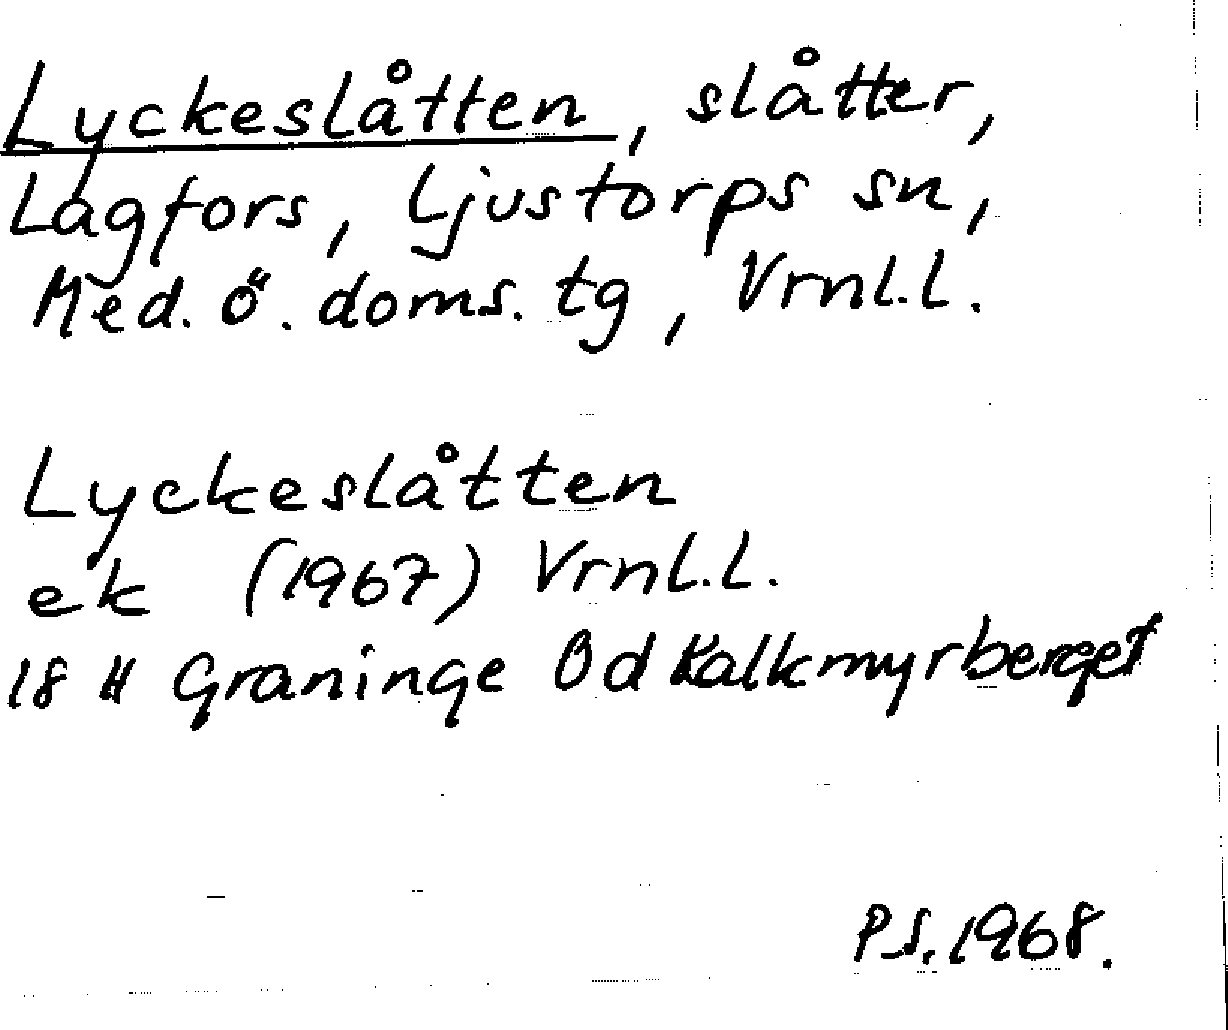 Lyckeslåtten, slåtter,
Lagfors, Ljustorps sn,
Med. ö. doms. tg, Vrnl.l.
Lyckeslåtten
ek (1967) Vrnl.l.
18 H Graninge 0d Kalkmyrberget
P.S. 1968.